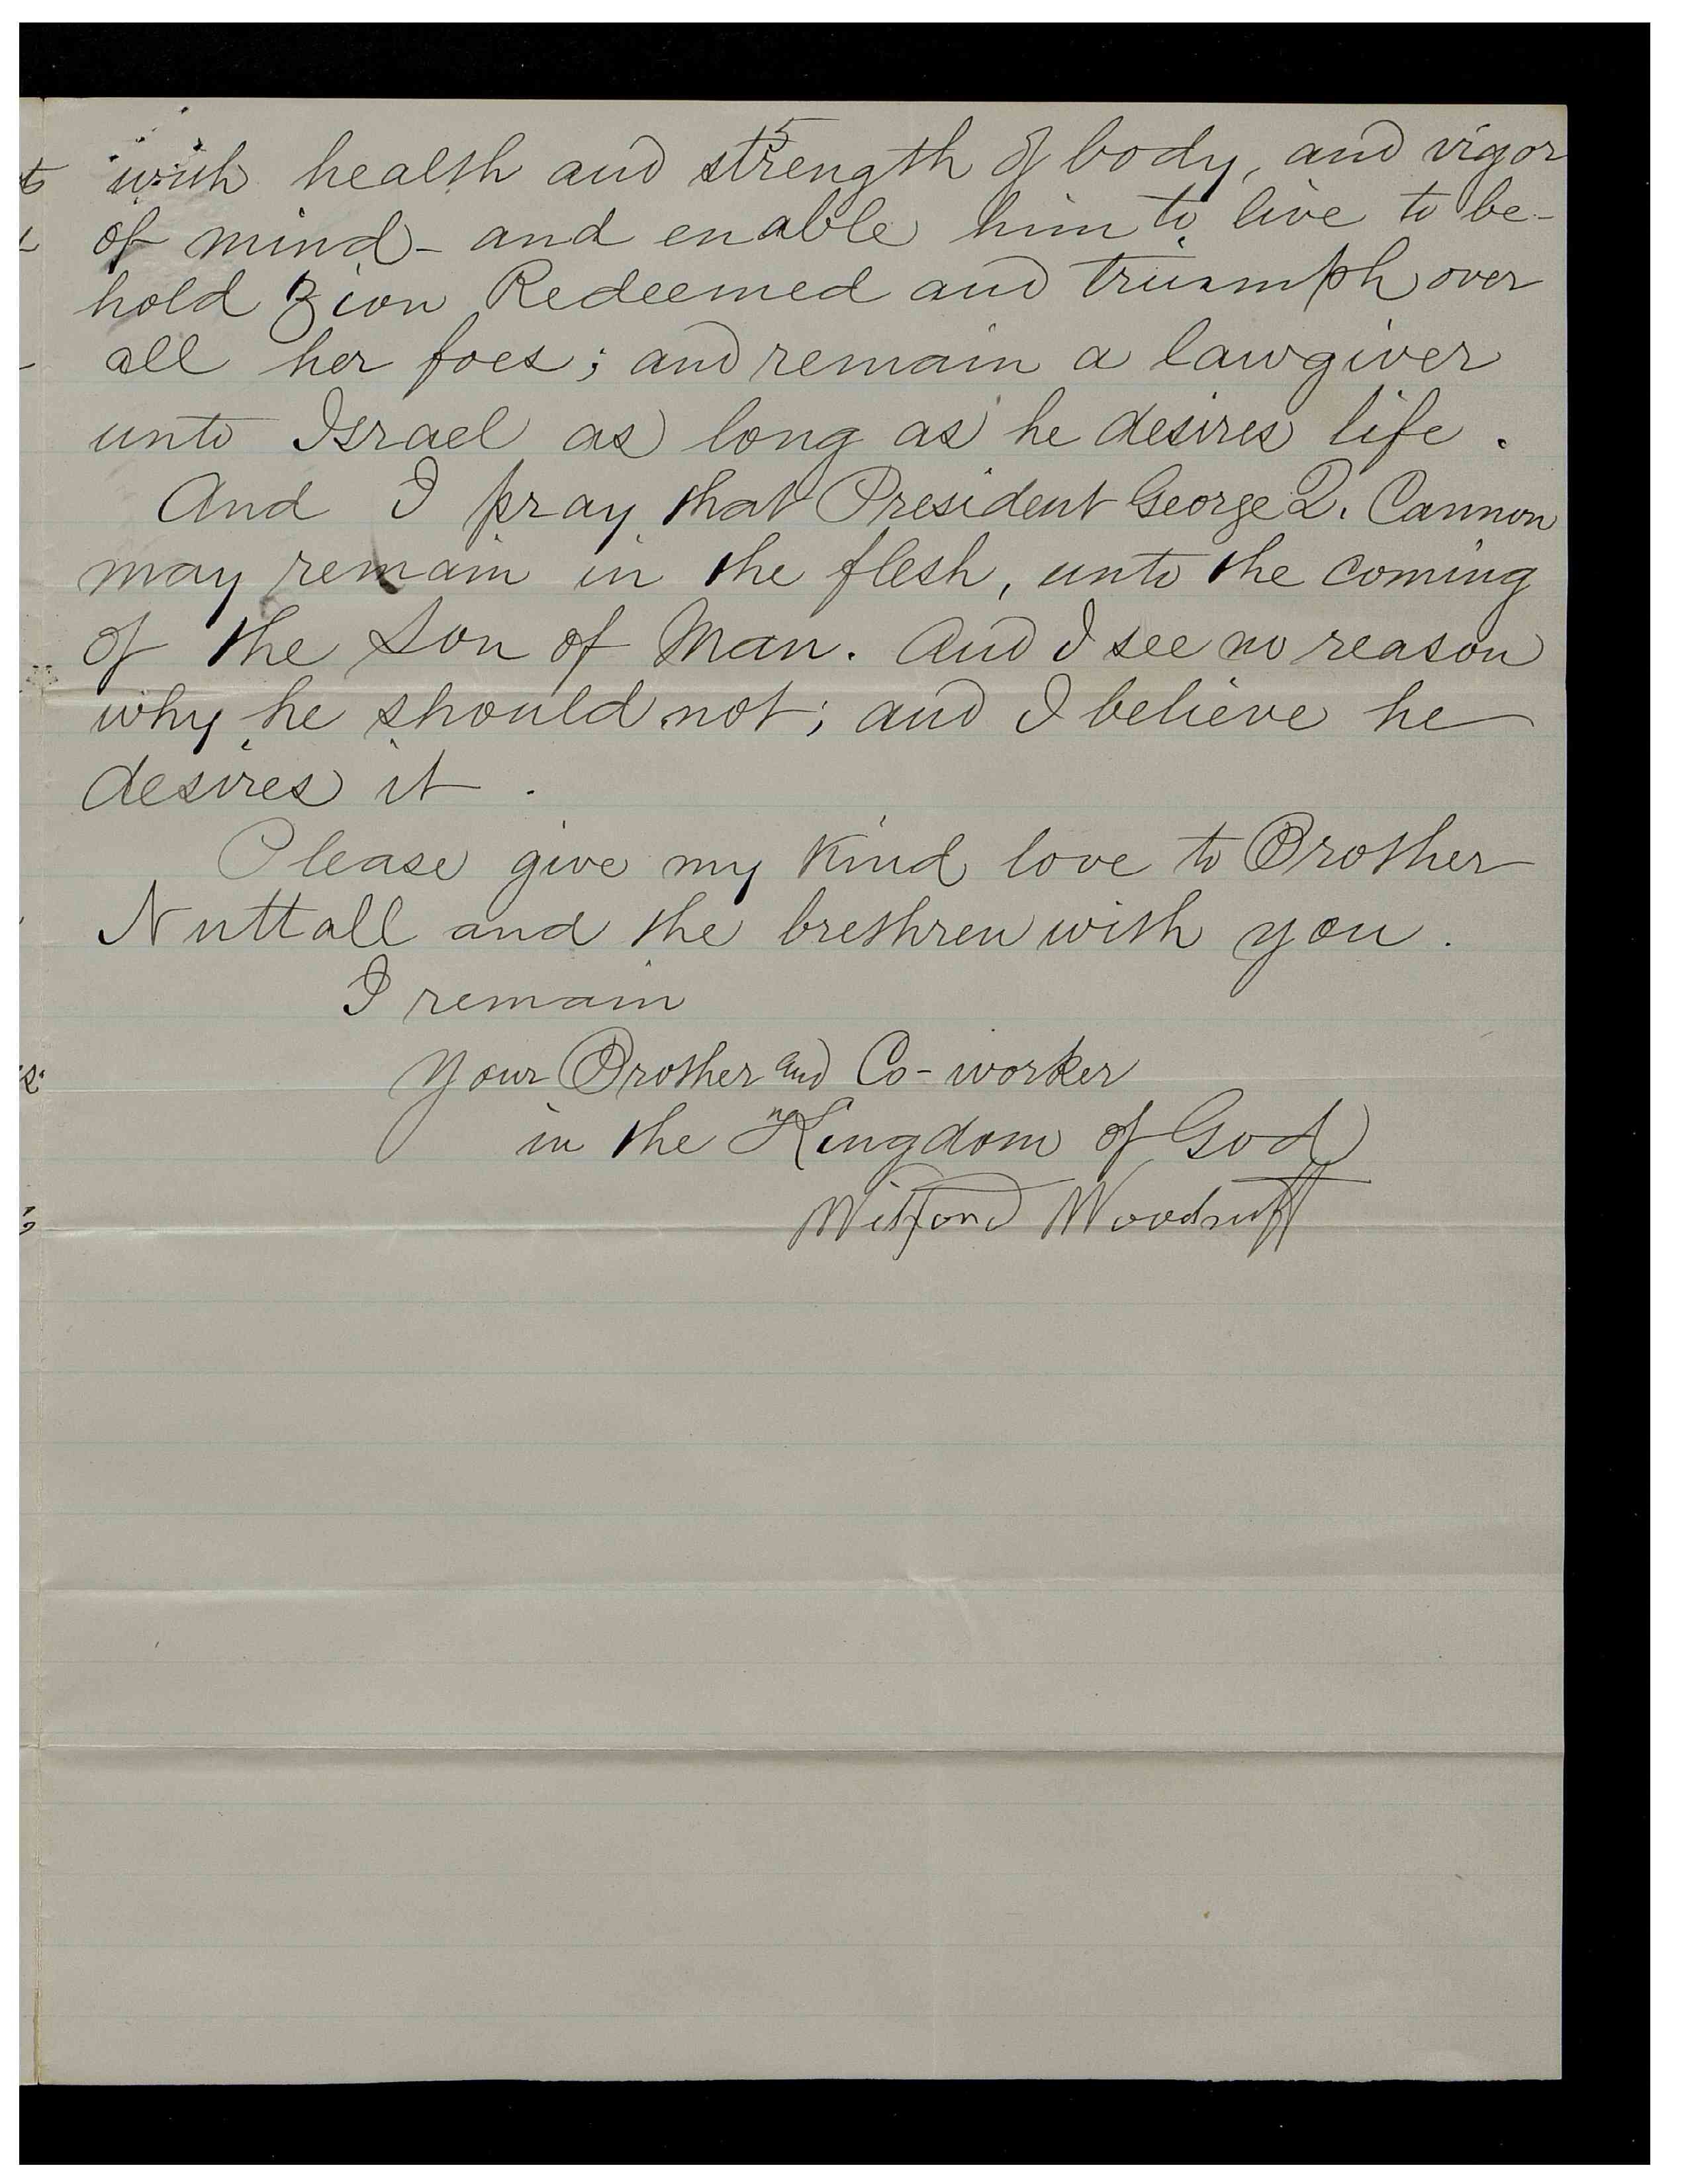 5
with health and strength of body, and vigor
of mind - and enable him to live to be-
hold Zion Redeemed and triumph over
all her foes; and remain a lawgiver
unto Israel as long as he desires life.
And I pray that President George Q. Cannon
may remain in the flesh, unto the coming
of the Son of Man. And I see no reason
why he should not; and I believe he
desires it.
Please give my kind love to Brother
Nuttall and the brethren with you.
I remain
Your Brother and Co-worker
in the Kingdom of God
Wilford Woodruff